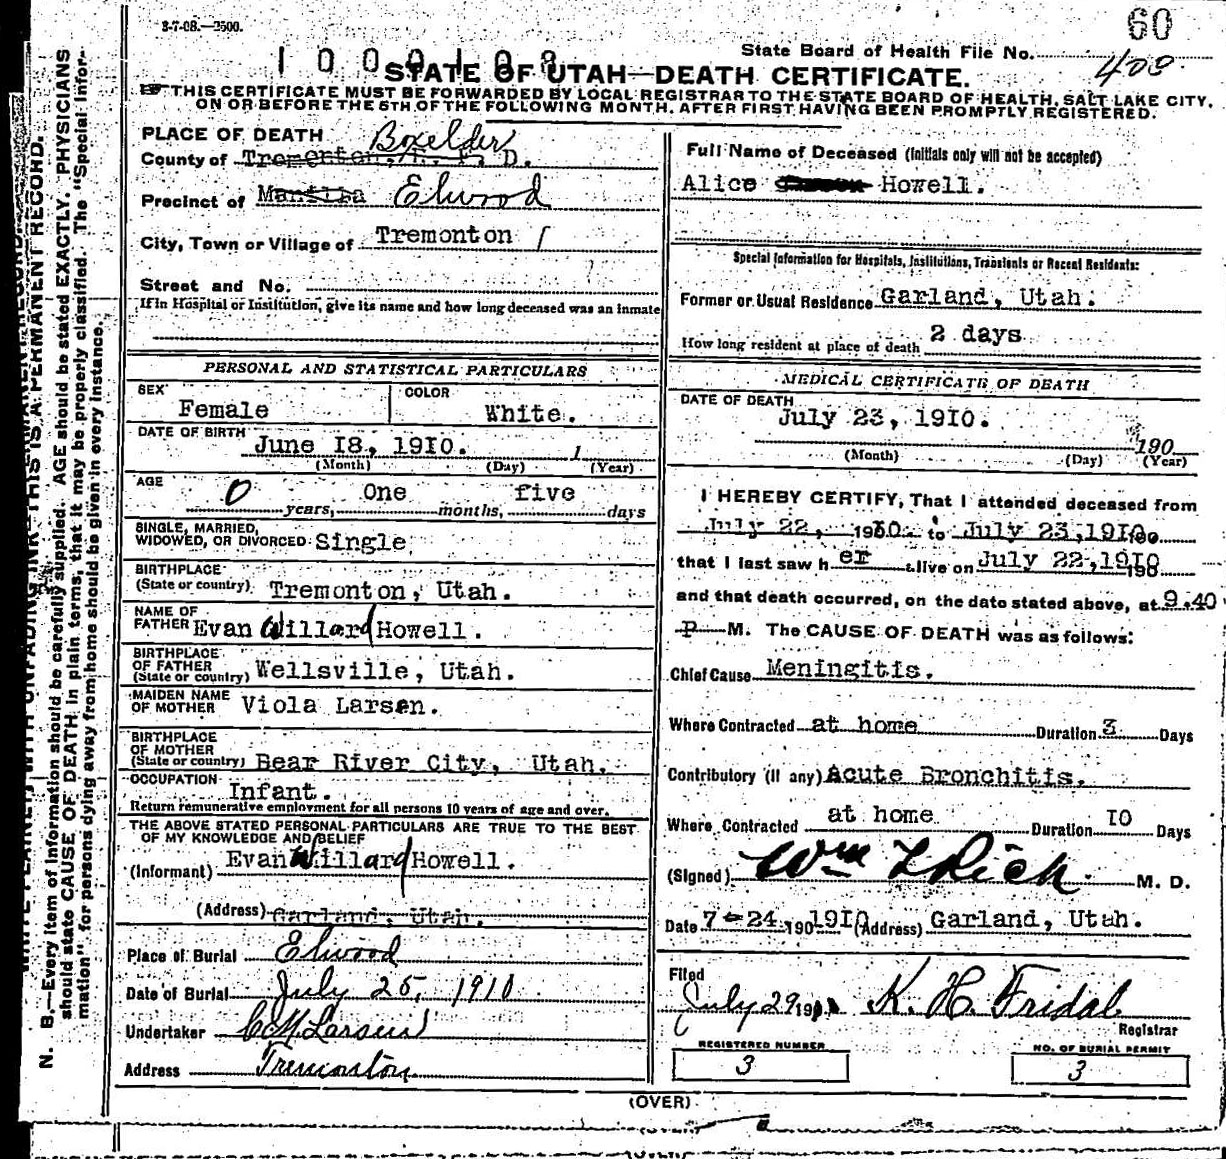 3-7-08.—2500.
60
State Board of Health File No. 408
STATE OF UTAH—DEATH CERTIFICATE.
THIS CERTIFICATE MUST BE FORWARDED BY LOCAL REGISTRAR TO THE STATE BOARD OF HEALTH, SALT LAKE CITY,
ON OR BEFORE THE 5TH OF THE FOLLOWING MONTH, AFTER FIRST HAVING BEEN PROMPTLY REGISTERED.
N. B.—Every item of information should be carefully supplied. AGE should be stated EXACTLY. PHYSICIANS
should state CAUSE OF DEATH in plain terms, that it may be properly classified. The "Special Infor-
mation" for persons dying away from home should be given in every instance.
PLACE OF DEATH Boxelder
County of Tremonton, R. F. D.
Precinct of Elwood
City, Town or Village of Tremonton
Street and No.
If in Hospital or Institution, give its name and how long deceased was an inmate
PERSONAL AND STATISTICAL PARTICULARS
SEX Female COLOR White.
DATE OF BIRTH June 18, 1910. 1
(Month) (Day) (Year)
AGE 0 years, One months, five days
SINGLE, MARRIED,
WIDOWED, OR DIVORCED Single
BIRTHPLACE
(State or country) Tremonton, Utah.
NAME OF
FATHER Evan Willard Howell.
BIRTHPLACE
OF FATHER
(State or country) Wellsville, Utah.
MAIDEN NAME
OF MOTHER Viola Larsen.
BIRTHPLACE
OF MOTHER
(State or country) Bear River City, Utah.
OCCUPATION Infant.
Return remunerative employment for all persons 10 years of age and over.
THE ABOVE STATED PERSONAL PARTICULARS ARE TRUE TO THE BEST
OF MY KNOWLEDGE AND BELIEF
(Informant) Evan Willard Howell.
(Address) Garland, Utah.
Place of Burial Elwood
Date of Burial July 25, 1910
Undertaker C M Larsen
Address Tremonton
Full Name of Deceased (Initials only will not be accepted)
Alice Howell.
Special Information for Hospitals, Institutions, Transients or Recent Residents:
Former or Usual Residence Garland, Utah.
How long resident at place of death 2 days
MEDICAL CERTIFICATE OF DEATH
DATE OF DEATH
July 23, 1910.
190
(Month) (Day) (Year)
I HEREBY CERTIFY, That I attended deceased from
July 22, 1910 to July 23, 1910
that I last saw her alive on July 22, 1910
and that death occurred, on the date stated above, at 9.40
P M. The CAUSE OF DEATH was as follows:
Chief Cause Meningitis.
Where Contracted at home Duration 3 Days
Contributory (if any) Acute Bronchitis.
Where Contracted at home Duration 10 Days
(Signed) Wm L Rich M. D.
Date 7-24 190 1910 (Address) Garland, Utah.
Filed
July 29 191 K. H. Fridal
Registrar
REGISTERED NUMBER
3
NO. OF BURIAL PERMIT
3
(OVER)